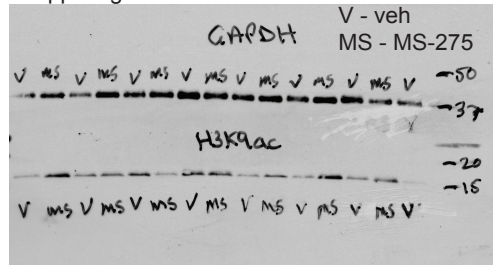 GAPDH
V - veh
MS - MS-275
V MS V MS V MS V MS V MS V MS V MS V
-50
-37
H3K9ac
-20
-15
V MS V MS V MS V MS V MS V MS V MS V